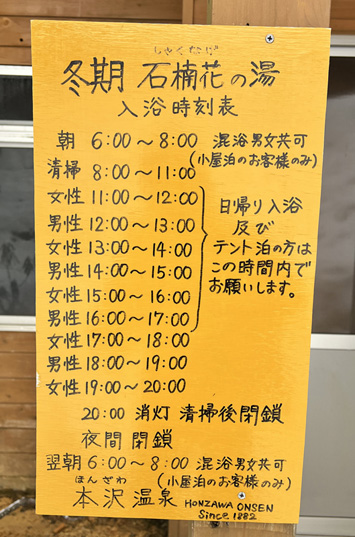 しゃくなげ
冬期 石楠花の湯
入浴時刻表
朝 6:00〜8:00 混浴男女共可
(小屋泊のお客様のみ)
清掃 8:00〜11:00
女性 11:00〜12:00
男性 12:00〜13:00
女性 13:00〜14:00
男性 14:00〜15:00
女性 15:00〜16:00
男性 16:00〜17:00
日帰り入浴
及び
テント泊の方は
この時間内で
お願いします。
女性 17:00〜18:00
男性 18:00〜19:00
女性 19:00〜20:00
20:00 消灯 清掃後閉鎖
夜間 閉鎖
翌朝 6:00〜8:00 混浴男女共可
(小屋泊のお客様のみ)
ほんざわ
本沢温泉 HONZAWA ONSEN
Since 1882